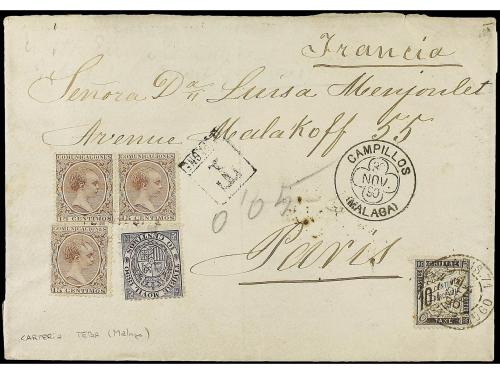 Francia
Señora Da Luisa Menjoulet
Avenue Malakoff 55
CAMPILLOS
NOV.
(90)
(MALAGA)
0'05
Paris
COMUNICACIONES
15 CENTIMOS
COMUNICACIONES
15 CENTIMOS
COMUNICACIONES
15 CENTIMOS
10 CENTIMOS
MOVIL
10
CENTIMES
TAXE
CARTERIA TEBA (Malaga)